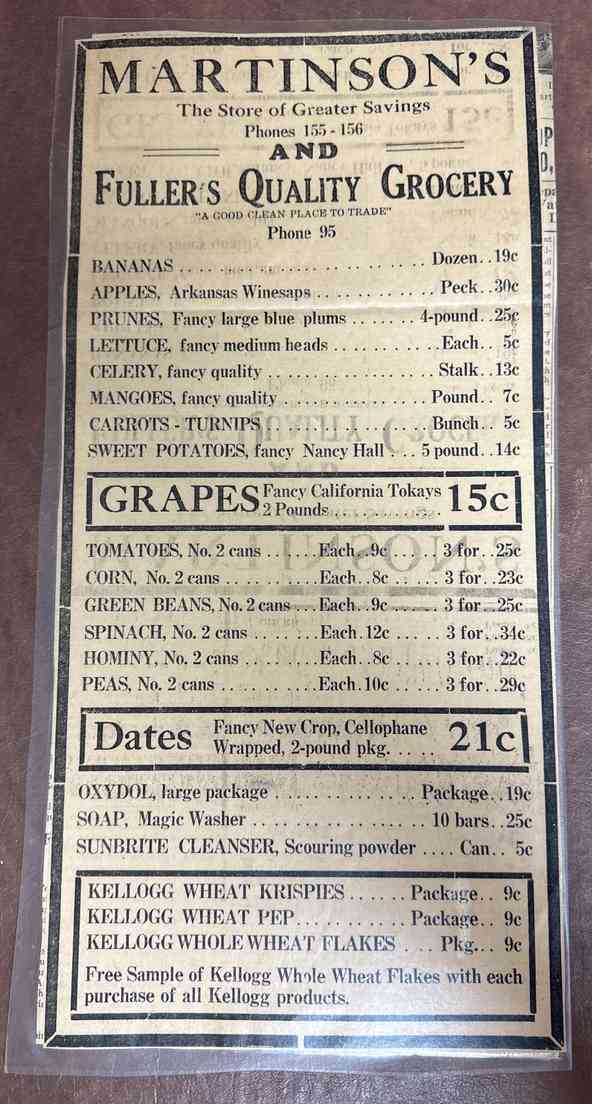 MARTINSON'S
The Store of Greater Savings
Phones 155 - 156
AND
FULLER'S QUALITY GROCERY
"A GOOD CLEAN PLACE TO TRADE"
Phone 95
BANANAS .......................... Dozen..19c
APPLES, Arkansas Winesaps ............ Peck..30c
PRUNES, Fancy large blue plums ....... 4-pound..25c
LETTUCE, fancy medium heads .......... Each.. 5c
CELERY, fancy quality ................ Stalk..13c
MANGOES, fancy quality .............. Pound.. 7c
CARROTS - TURNIPS ................. Bunch.. 5c
SWEET POTATOES, fancy Nancy Hall ... 5 pound..14c
GRAPES Fancy California Tokays 15c
2 Pounds ...........
TOMATOES, No. 2 cans ......Each..9c ..... 3 for..25c
CORN, No. 2 cans ..........Each..8c ..... 3 for..23c
GREEN BEANS, No. 2 cans...Each..9c ..... 3 for..25c
SPINACH, No. 2 cans .......Each.12c ..... 3 for..34c
HOMINY, No. 2 cans ........Each..8c ..... 3 for..22c
PEAS, No. 2 cans ..........Each.10c ..... 3 for..29c
Dates Fancy New Crop, Cellophane 21c
Wrapped, 2-pound pkg. ....
OXYDOL, large package .............. Package..19c
SOAP, Magic Washer ................. 10 bars..25c
SUNBRITE CLEANSER, Scouring powder .... Can.. 5c
KELLOGG WHEAT KRISPIES ...... Package.. 9c
KELLOGG WHEAT PEP........... Package.. 9c
KELLOGG WHOLE WHEAT FLAKES ... Pkg... 9c
Free Sample of Kellogg Whole Wheat Flakes with each
purchase of all Kellogg products.